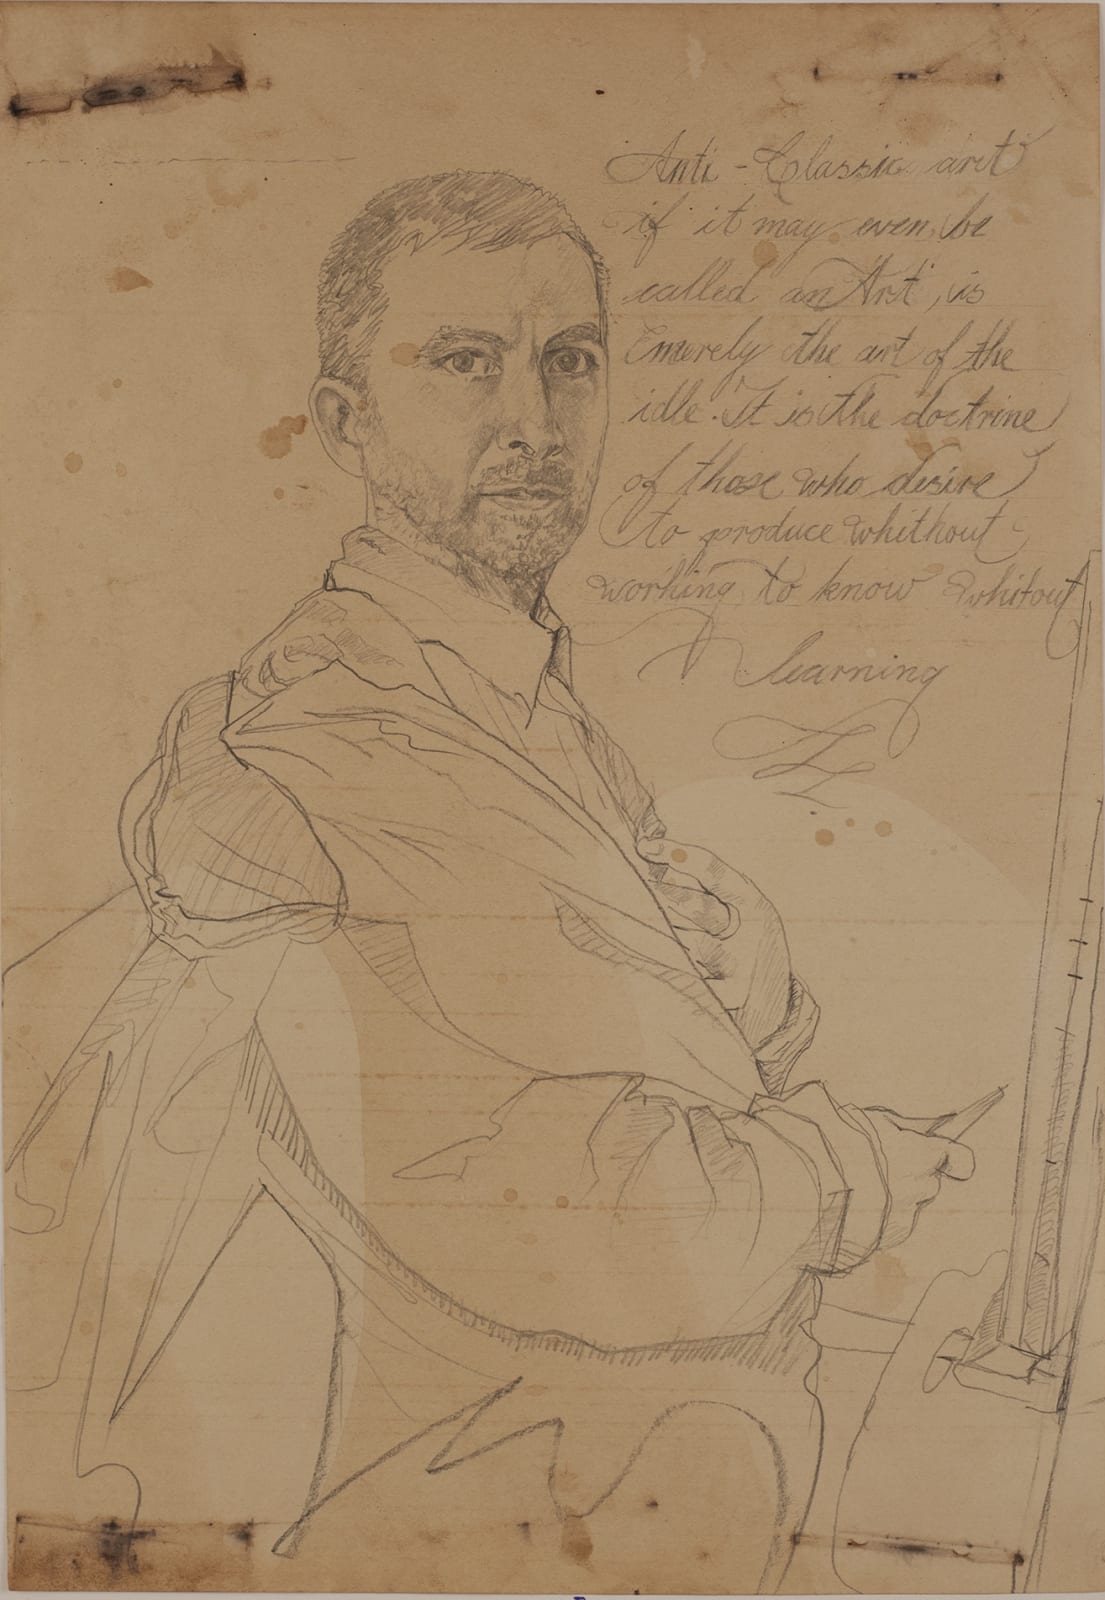 Anti-Classic art
if it may even be
called an Art, is
merely the art of the
idle. It is the doctrine
of those who desire
to produce whithout
working, to know whitout
learning